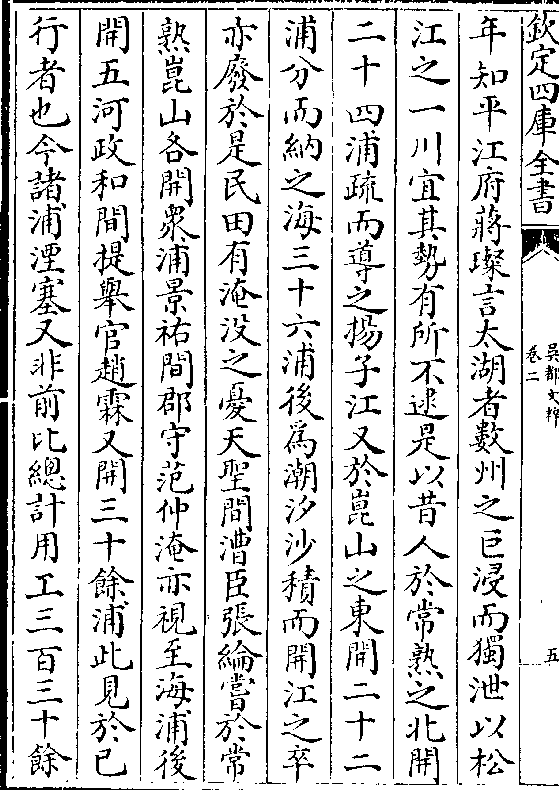 欽定四庫全書
吳都文粹
卷二
五
年知平江府蔣璨言太湖者數州之巨浸而獨泄以松
江之一川宜其勢有所不逮是以昔人於常熟之北開
二十四浦疏而導之揚子江又於崑山之東開一十二
浦分而納之海三十六浦後為潮汐沙積而開江之卒
亦廢於是民田有淹沒之憂天聖間漕臣張綸嘗於常
熟崑山各開衆浦景祐間郡守范仲淹亦視至海浦後
開五河政和間提舉官趙霖又開三十餘浦此見於已
行者也今諸浦湮塞又非前比總計用工三百三十餘